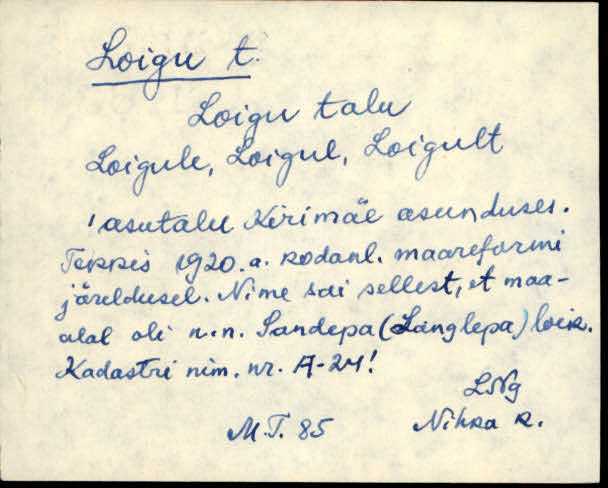 Loigu t.
Loigu talu
Loigule, Loigul, Loigult
'asutalu Kirimäe asunduses.
Tekkis 1920.a. kodanl. maareformi
järeldusel. Nime sai sellest, et maa-
alal oli n.n. Sandepa (Länglepa) loik.
Kadastri nim. nr. A-24!
LNg
M.T. 85 Nihka k.